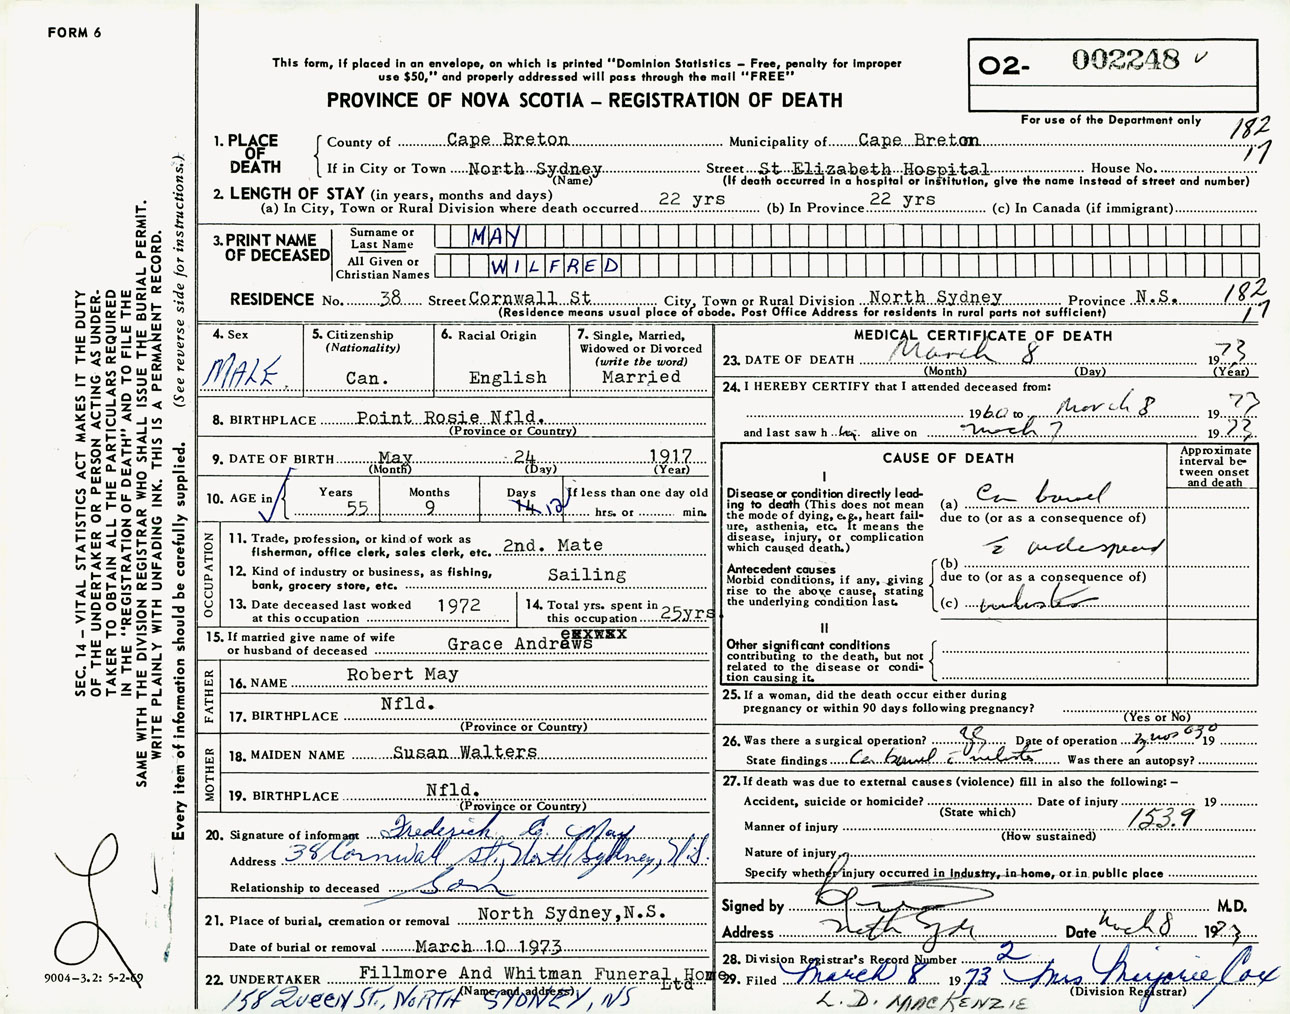 FORM 6
This form, if placed in an envelope, on which is printed "Dominion Statistics – Free, penalty for improper
use $50," and properly addressed will pass through the mail "FREE"
O2- 002248
PROVINCE OF NOVA SCOTIA – REGISTRATION OF DEATH
For use of the Department only
182
17
1. PLACE OF DEATH
County of Cape Breton Municipality of Cape Breton
If in City or Town North Sydney Street St Elizabeth Hospital House No.
(Name) (If death occurred in a hospital or institution, give the name instead of street and number)
2. LENGTH OF STAY (in years, months and days)
(a) In City, Town or Rural Division where death occurred 22 yrs (b) In Province 22 yrs (c) In Canada (if immigrant)
3. PRINT NAME OF DECEASED
Surname or Last Name MAY
All Given or Christian Names WILFRED
RESIDENCE No. 38 Street Cornwall St City, Town or Rural Division North Sydney Province N.S. 182
17
(Residence means usual place of abode. Post Office Address for residents in rural parts not sufficient)
4. Sex MALE
5. Citizenship (Nationality) Can.
6. Racial Origin English
7. Single, Married, Widowed or Divorced (write the word) Married
8. BIRTHPLACE Point Rosie Nfld.
(Province or Country)
9. DATE OF BIRTH May 24 1917
(Month) (Day) (Year)
10. AGE in Years 55 Months 9 Days 14 12 If less than one day old hrs. or min.
OCCUPATION
11. Trade, profession, or kind of work as fisherman, office clerk, sales clerk, etc. 2nd. Mate
12. Kind of industry or business, as fishing, bank, grocery store, etc. Sailing
13. Date deceased last worked at this occupation 1972
14. Total yrs. spent in this occupation 25yrs
15. If married give name of wife or husband of deceased Grace Andrews
FATHER
16. NAME Robert May
17. BIRTHPLACE Nfld.
(Province or Country)
MOTHER
18. MAIDEN NAME Susan Walters
19. BIRTHPLACE Nfld.
(Province or Country)
20. Signature of informant Frederick G. May
Address 38 Cornwall St., North Sydney, N.S.
Relationship to deceased Son
21. Place of burial, cremation or removal North Sydney, N.S.
Date of burial or removal March 10 1973
22. UNDERTAKER Fillmore And Whitman Funeral Home Ltd
(Name and address)
158 QUEEN ST., NORTH SYDNEY, NS
MEDICAL CERTIFICATE OF DEATH
23. DATE OF DEATH March 8 1973
(Month) (Day) (Year)
24. I HEREBY CERTIFY that I attended deceased from:
1960 to March 8 1973
and last saw h alive on March 7 1973
CAUSE OF DEATH
Approximate interval between onset and death
I
Disease or condition directly leading to death (This does not mean the mode of dying, e.g., heart failure, asthenia, etc. It means the disease, injury, or complication which caused death.)
(a) Ca bowel
due to (or as a consequence of)
widespread
Antecedent causes
Morbid conditions, if any, giving rise to the above cause, stating the underlying condition last.
(b)
due to (or as a consequence of)
(c)
II
Other significant conditions
contributing to the death, but not related to the disease or condition causing it.
25. If a woman, did the death occur either during pregnancy or within 90 days following pregnancy?
(Yes or No)
26. Was there a surgical operation? Date of operation 19
State findings Ca bowel Was there an autopsy?
27. If death was due to external causes (violence) fill in also the following: –
Accident, suicide or homicide? Date of injury 19
(State which)
Manner of injury 153.9
(How sustained)
Nature of injury
Specify whether injury occurred in industry, in home, or in public place
Signed by M.D.
Address North Syd Date March 8 1973
28. Division Registrar's Record Number 2
29. Filed March 8 1973 Mrs Marjorie Cox
(Division Registrar)
L. D. MACKENZIE
SEC. 14 – VITAL STATISTICS ACT MAKES IT THE DUTY
OF THE UNDERTAKER OR PERSON ACTING AS UNDER-
TAKER TO OBTAIN ALL THE PARTICULARS REQUIRED
IN THE "REGISTRATION OF DEATH" AND TO FILE THE
SAME WITH THE DIVISION REGISTRAR WHO SHALL ISSUE THE BURIAL PERMIT.
WRITE PLAINLY WITH UNFADING INK. THIS IS A PERMANENT RECORD.
Every item of information should be carefully supplied. (See reverse side for instructions.)
9004-3.2: 5-2-69